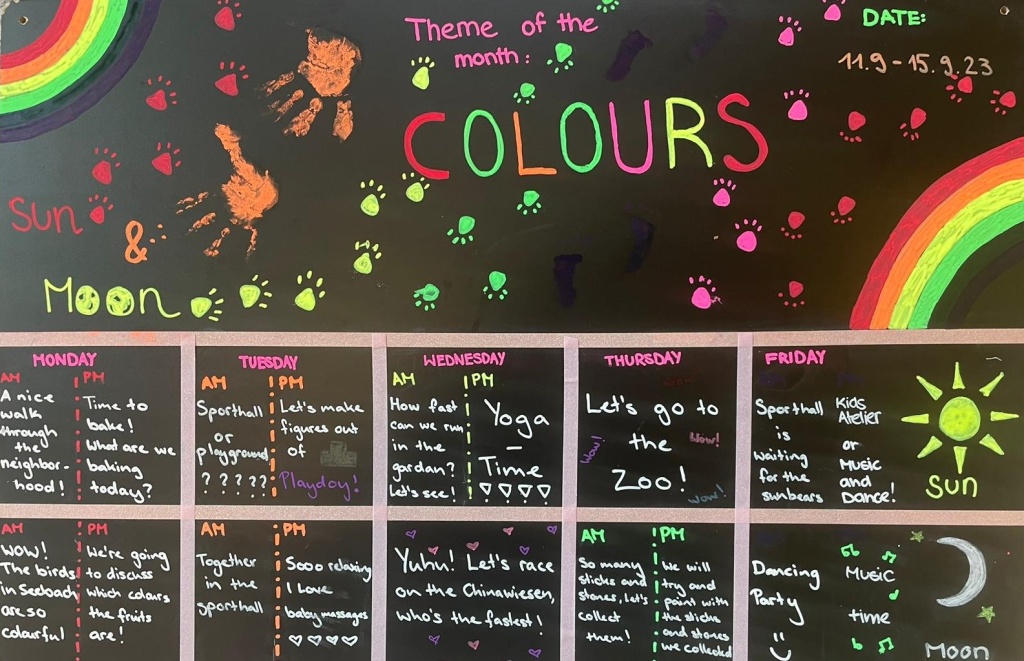 Theme of the
month:
DATE:
11.9 - 15.9.23
COLOURS
Sun
&
Moon
MONDAY
AM
A nice
walk
through
the
neighbor-
hood!
PM
Time to
bake!
What are we
baking
today?
TUESDAY
AM
Sporthall
or
playground
?????
PM
Let's make
figures out
of
Playdoy!
WEDNESDAY
AM
How fast
can we run
in the
gardan?
Let's see!
PM
Yoga
-
Time
THURSDAY
Let's go to
the
Zoo!
Wow!
Wow!
Wow!
FRIDAY
Sporthall
is
waiting
for the
sunbears
Kids
Atelier
or
Music
and
Dance!
Sun
AM
Wow!
The birds
in Seebach
are so
colourful
PM
We're going
to discuss
which colours
the fruits
are!
AM
Together
in the
sporthall
PM
Sooo relaxing
I Love
baby massages
Yuhu! Let's race
on the Chinawiesen,
who's the fastest!
AM
So many
sticks and
stones, let's
collect
them!
PM
We will
try and
paint with
the sticks
and stones
we collected
Dancing
Party
Music
time
Moon